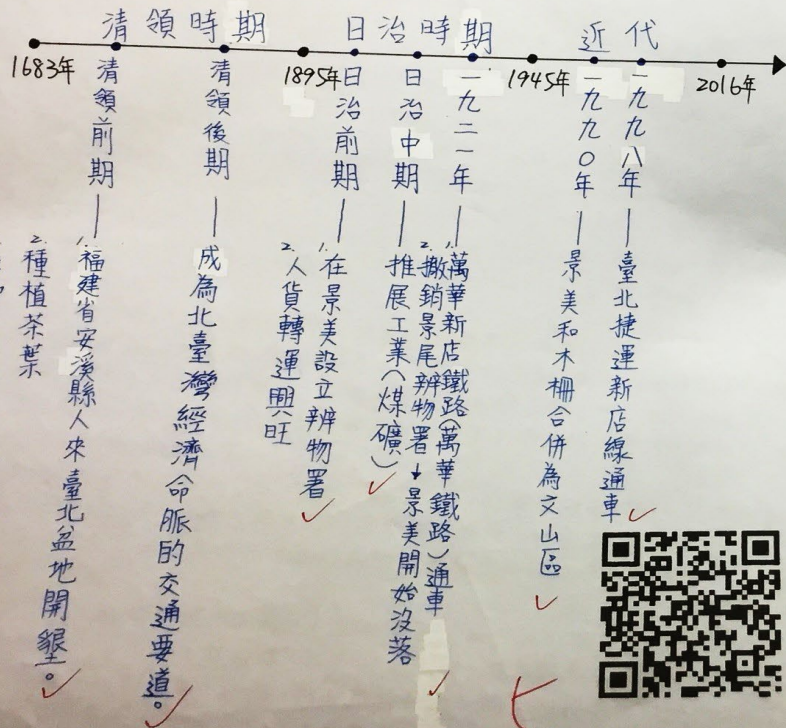 清領時期
日治時期
近代
1683年
1895年
1945年
2016年
清領前期—
1.福建省安溪縣人來臺北盆地開墾。
2.種植茶葉
清領後期—成為北臺灣經濟命脈的交通要道。
日治前期—
1.在景美設立辦物署
2.人貨轉運興旺
日治中期—推展工業(煤礦)
一九二一年—
1.萬華新店鐵路(萬華鐵路)通車
2.撤銷景尾辦物署→景美開始沒落
一九九〇年—景美和木柵合併為文山區
一九九八年—臺北捷運新店線通車